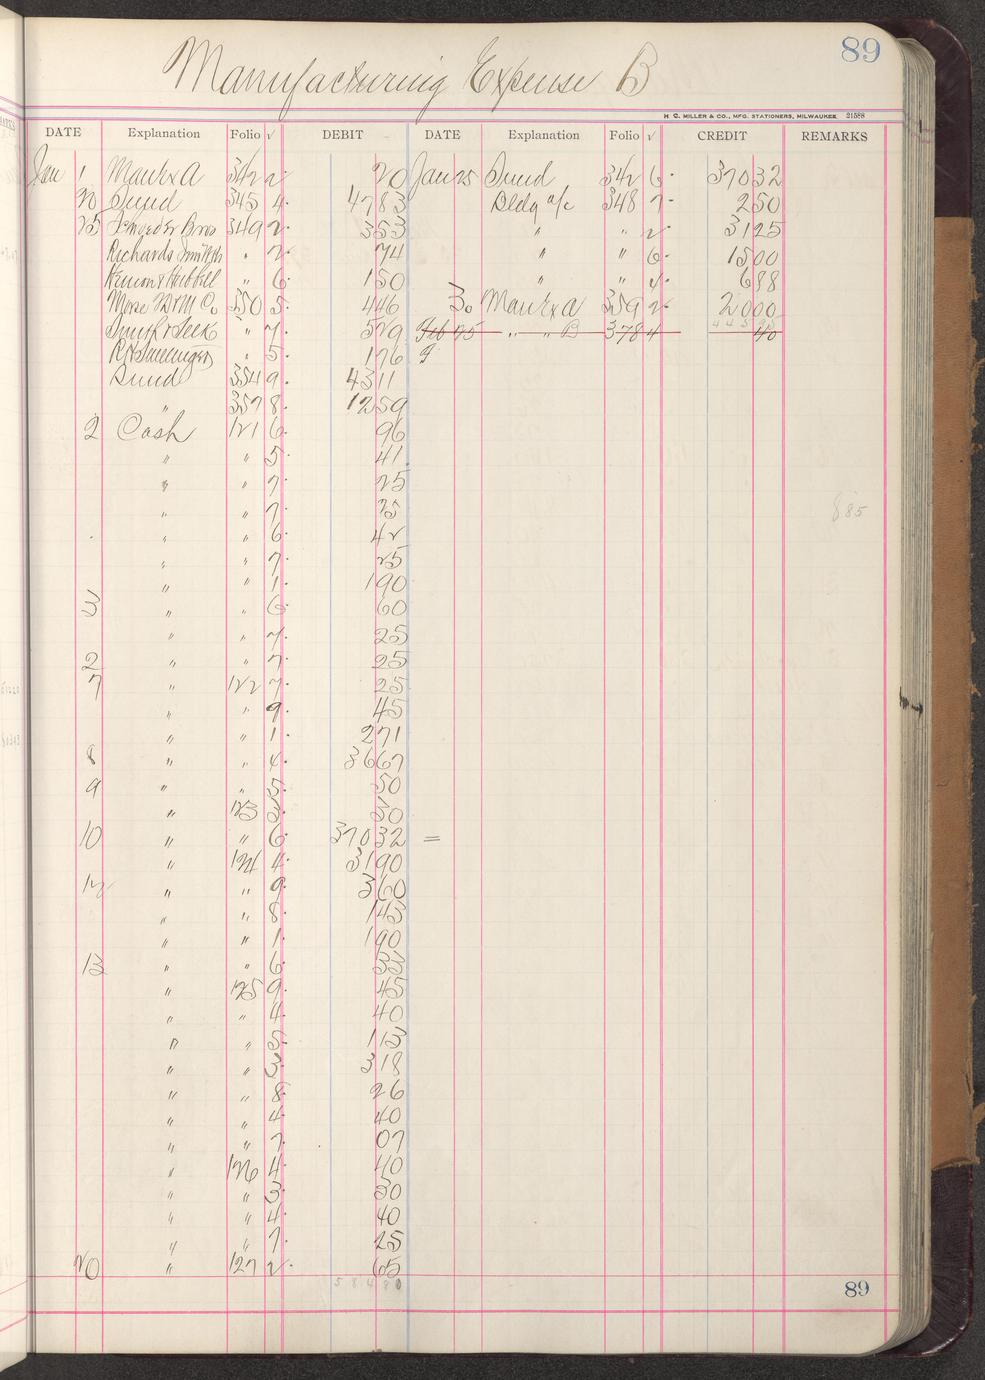 89
Manufacturing Expense B
H. C. MILLER & CO., MFG. STATIONERS, MILWAUKEE 21588
DATE Explanation Folio √ DEBIT DATE Explanation Folio √ CREDIT REMARKS
Jan 1 Manf Ex A 342 2 20 Jan 25 Sund 342 6 370 32
20 Sund 345 4 47 83 Bldg a/c 348 7 2 50
25 Bros 349 2 3 53 " " 2 31 25
Richards 〃 2 74 " " 6 15 00
& Hubbell " 6 1 50 " " 4 6 88
Morse Co 350 5 4 46 30 Manf Ex A 359 2 20 00
Smith & " 7 5 29 Feb 25 " " B 378 4 40
" 5 1 76
Sund 354 9 43 11
" 357 8 12 59
2 Cash 121 6 96
" " 5 41
" " 7 25
" " 7 35
" " 6 42
" " 7 25
" " 1 1 90
3 " " 6 60
" " 7 25
2 " " 7 25
7 " 122 7 25
" " 9 45
" " 1 2 71
8 " " 4 36 67
9 " " 5 50
" 123 5 30
10 " " 6 370 32 =
" 124 4 31 90
12 " " 9 3 60
" " 8 1 43
" " 1 1 90
13 " " 6 33
" 125 9 45
" " 4 40
" " 5 1 13
" " 3 3 18
" " 8 26
" " 4 40
" " 7 07
" 126 4 40
" " 3 30
" " 4 40
" " 7 25
20 " 127 2 65
89